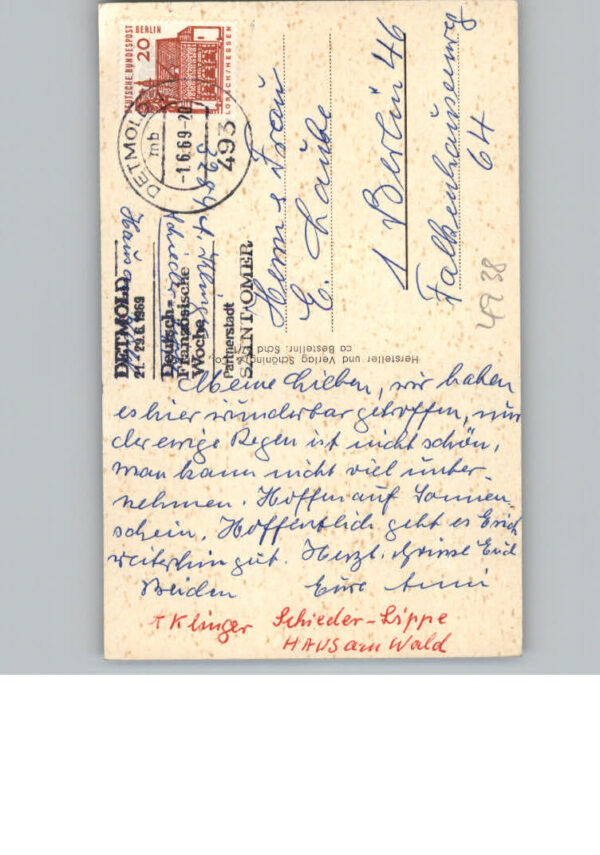 DEUTSCHE BUNDESPOST BERLIN
20
LORSCH/HESSEN
DETMOLD
mb
-1.6.69-20
493
DETMOLD
21.-29.6.1969
Deutsch-
Französische
Woche
Partnerstadt
SAINT OMER
Haus am
3284
Schieder
Herrn u Frau
E. Laube
1 Berlin 46
Falkenhausenweg
64
4938
Hersteller und Verlag Schöning & Co.,
Bestellnr. Schd
Meine Lieben, wir haben
es hier wunderbar getroffen, nur
der ewige Regen ist nicht schön,
man kann nicht viel unter-
nehmen. Hoffen auf Sonnen-
schein. Hoffentlich geht es Euch
weiterhin gut. Herzl. Grüsse Euch
Beiden Eure Anni
Klinger Schieder-Lippe
HAUS am Wald